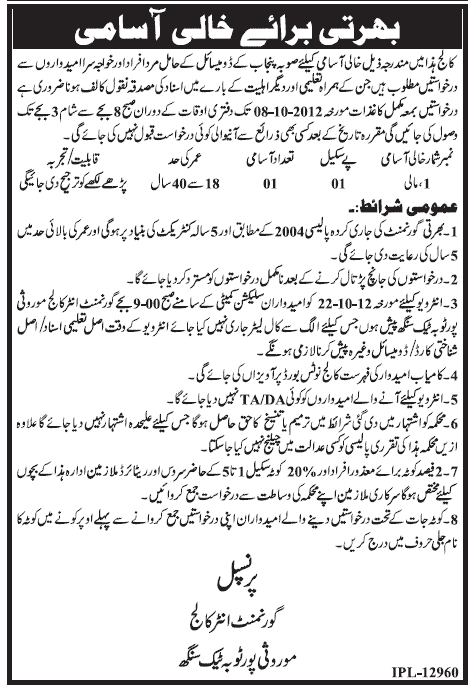 بھرتی برائے خالی آسامی
کالج ہذا میں مندرجہ ذیل خالی آسامی کیلئے صوبہ پنجاب کے ڈومیسائل کے حامل مرد افراد اور خواجہ سرا امیدواروں سے
درخواستیں مطلوب ہیں جن کے ہمراہ تعلیمی اور دیگر اہلیت کے بارے میں اسناد کی مصدقہ نقول کا لف ہونا ضروری ہے
درخواستیں بمعہ مکمل کاغذات مورخہ 2012-10-08 تک دفتری اوقات کے دوران صبح 8 بجے تا شام 3 بجے تک
وصول کی جائیں گی مقررہ تاریخ کے بعد کسی بھی ذرائع سے آنیوالی کوئی درخواست قبول نہیں کی جائے گی۔
نمبر شمار خالی آسامی پے سکیل تعداد آسامی عمر کی حد قابلیت/تجربہ
1۔ مالی 01 01 18 سے 40 سال پڑھے لکھے کو ترجیح دی جائیگی
عمومی شرائط:۔
1۔ بھرتی گورنمنٹ کی جاری کردہ پالیسی 2004 کے مطابق اور 5 سالہ کنٹریکٹ کی بنیاد پر ہوگی اور عمر کی بالائی حد میں
5 سال کی رعایت دی جائے گی۔
2۔ درخواستوں کی جانچ پڑتال کرنے کے بعد نامکمل درخواستوں کو مسترد کر دیا جائے گا۔
3۔ انٹرویو کیلئے مورخہ 12-10-22 کو امیدواران سلیکشن کمیٹی کے سامنے صبح 00-9 بجے گورنمنٹ انٹر کالج موروثی
پور ٹوبہ ٹیک سنگھ پیش ہوں جس کیلئے الگ سے کال لیٹر جاری نہیں کیا جائے انٹرویو کے وقت اصل تعلیمی اسناد/اصل
شناختی کارڈ/ڈومیسائل وغیرہ پیش کرنا لازمی ہونگے۔
4۔ کامیاب امیدوار کی فہرست کالج نوٹس بورڈ پر آویزاں کی جائے گی۔
5۔ انٹرویو کیلئے آنے والے امیدواروں کو کوئی TA/DA نہیں دیا جائے گا۔
6۔ محکمہ کو اشتہار میں دی گئی شرائط میں ترمیم یا تنسیخ کا حق حاصل ہوگا جس کیلئے علیحدہ اشتہار نہیں دیا جائے گا علاوہ
ازیں محکمہ ہذا کی تقرری پالیسی کو کسی عدالت میں چیلنج نہیں کیا جا سکتا۔
7۔ 2 فیصد کوٹہ برائے معذور افراد اور %20 کوٹہ سکیل 1 تا 5 کے حاضر سروس اور ریٹائرڈ ملازمین ادارہ ہذا کے بچوں
کیلئے مختص ہوگا سرکاری ملازمین اپنے محکمہ کی وساطت سے درخواست جمع کروائیں۔
8۔ کوٹہ جات کے تحت درخواستیں دینے والے امیدواران اپنی درخواستیں جمع کروانے سے پہلے اوپر کونے میں کوٹہ کا
نام جلی حروف میں درج کریں۔
پرنسپل
گورنمنٹ انٹر کالج
موروثی پور ٹوبہ ٹیک سنگھ
IPL-12960